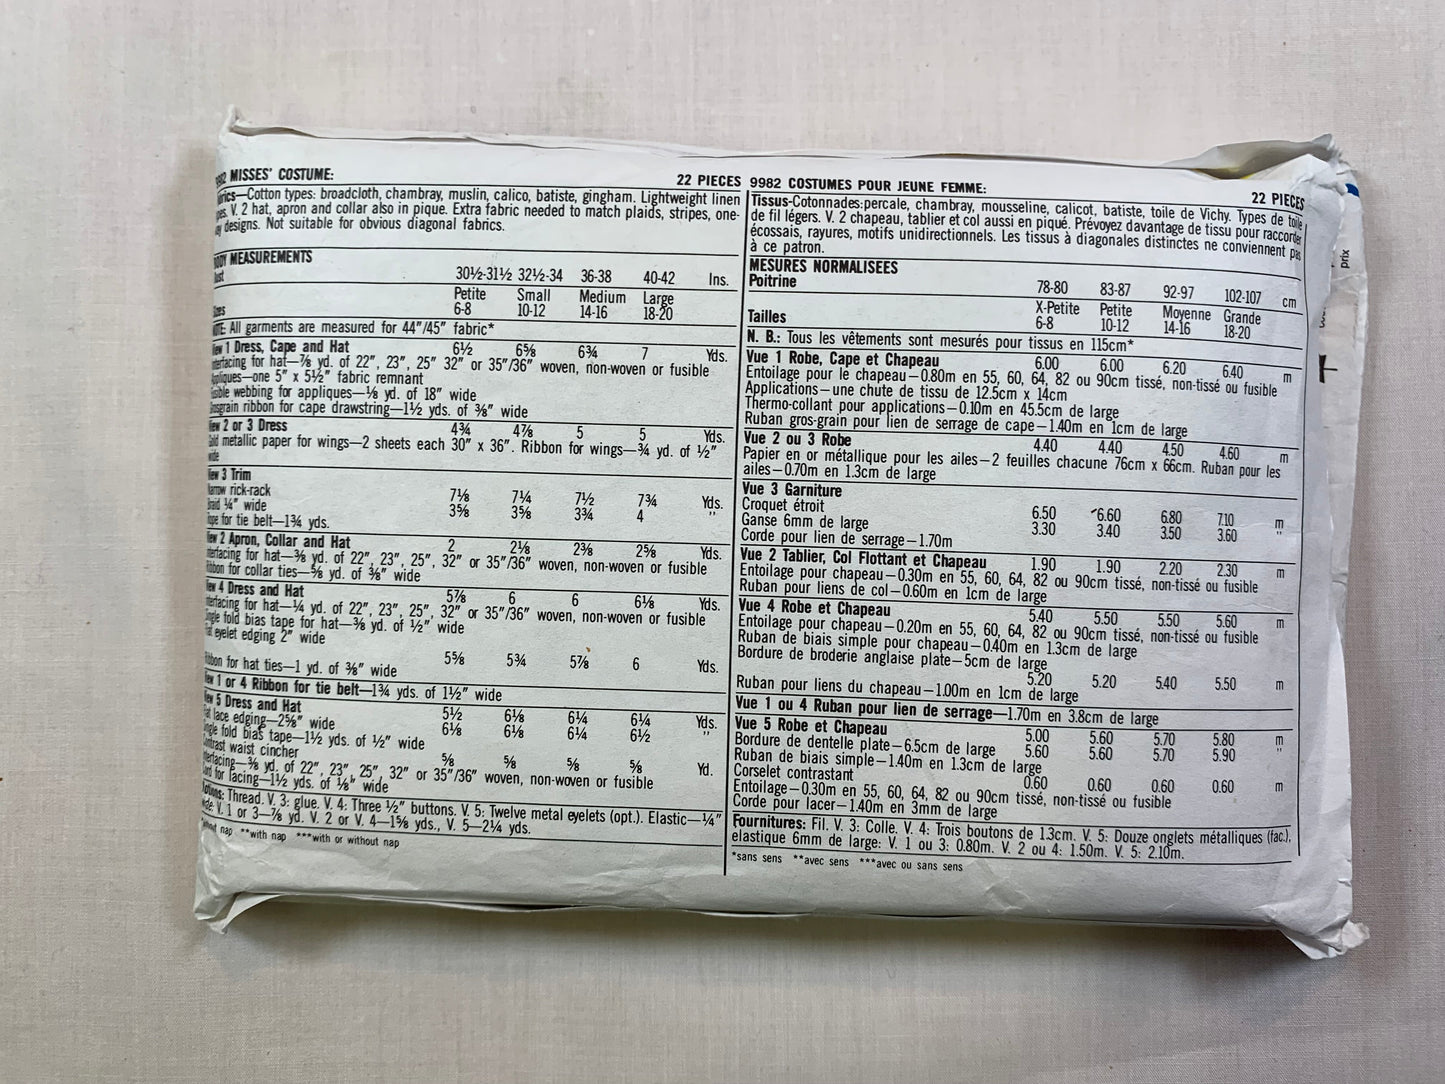 MISSES' COSTUME: 22 PIECES
Cotton types: broadcloth, chambray, muslin, calico, batiste, gingham. Lightweight linen
V. 2 hat, apron and collar also in pique. Extra fabric needed to match plaids, stripes, one-
designs. Not suitable for obvious diagonal fabrics.
MEASUREMENTS
30½-31½ 32½-34 36-38 40-42 Ins.
Petite Small Medium Large
6-8 10-12 14-16 18-20
All garments are measured for 44"/45" fabric*
1 Dress, Cape and Hat 6½ 6⅝ 6¾ 7 Yds.
for hat—⅞ yd. of 22", 23", 25" 32" or 35"/36" woven, non-woven or fusible
one 5" x 5½" fabric remnant
webbing for appliques—⅛ yd. of 18" wide
ribbon for cape drawstring—1½ yds. of ⅜" wide
2 or 3 Dress 4¾ 4⅞ 5 5 Yds.
metallic paper for wings—2 sheets each 30" x 36". Ribbon for wings—¾ yd. of ½"
wide
3 Trim
rick-rack 7⅛ 7¼ 7½ 7¾ Yds.
¼" wide 3⅝ 3⅝ 3¾ 4 "
for tie belt—1¾ yds.
2 Apron, Collar and Hat 2 2⅛ 2⅜ 2⅝ Yds.
for hat—⅜ yd. of 22", 23", 25", 32" or 35"/36" woven, non-woven or fusible
for collar ties—⅝ yd. of ⅜" wide
4 Dress and Hat 5⅞ 6 6 6⅛ Yds.
for hat—¼ yd. of 22", 23", 25", 32" or 35"/36" woven, non-woven or fusible
fold bias tape for hat—⅜ yd. of ½" wide
eyelet edging 2" wide
5⅝ 5¾ 5⅞ 6 Yds.
for hat ties—1 yd. of ⅜" wide
1 or 4 Ribbon for tie belt—1¾ yds. of 1½" wide
5 Dress and Hat 5½ 6⅛ 6¼ 6¼ Yds.
lace edging—2⅝" wide 6⅛ 6⅛ 6¼ 6½ "
fold bias tape—1½ yds. of ½" wide
waist cincher ⅝ ⅝ ⅝ ⅝ Yd.
⅜ yd. of 22", 23", 25", 32" or 35"/36" woven, non-woven or fusible
for lacing—1½ yds. of ⅛" wide
Thread. V. 3: glue. V. 4: Three ½" buttons. V. 5: Twelve metal eyelets (opt.). Elastic—¼"
V. 1 or 3—⅞ yd. V. 2 or V. 4—1⅝ yds., V. 5—2¼ yds.
nap **with nap ***with or without nap
9982 COSTUMES POUR JEUNE FEMME: 22 PIECES
Tissus-Cotonnades:percale, chambray, mousseline, calicot, batiste, toile de Vichy. Types de toile
de fil légers. V. 2 chapeau, tablier et col aussi en piqué. Prévoyez davantage de tissu pour raccorder
écossais, rayures, motifs unidirectionnels. Les tissus à diagonales distinctes ne conviennent pas
à ce patron.
MESURES NORMALISEES
Poitrine 78-80 83-87 92-97 102-107 cm
X-Petite Petite Moyenne Grande
Tailles 6-8 10-12 14-16 18-20
N. B.: Tous les vêtements sont mesurés pour tissus en 115cm*
Vue 1 Robe, Cape et Chapeau 6.00 6.00 6.20 6.40 m
Entoilage pour le chapeau—0.80m en 55, 60, 64, 82 ou 90cm tissé, non-tissé ou fusible
Applications—une chute de tissu de 12.5cm x 14cm
Thermo-collant pour applications—0.10m en 45.5cm de large
Ruban gros-grain pour lien de serrage de cape—1.40m en 1cm de large
Vue 2 ou 3 Robe 4.40 4.40 4.50 4.60 m
Papier en or métallique pour les ailes—2 feuilles chacune 76cm x 66cm. Ruban pour les
ailes—0.70m en 1.3cm de large
Vue 3 Garniture
Croquet étroit 6.50 6.60 6.80 7.10 m
Ganse 6mm de large 3.30 3.40 3.50 3.60 "
Corde pour lien de serrage—1.70m
Vue 2 Tablier, Col Flottant et Chapeau 1.90 1.90 2.20 2.30 m
Entoilage pour chapeau—0.30m en 55, 60, 64, 82 ou 90cm tissé, non-tissé ou fusible
Ruban pour liens de col—0.60m en 1cm de large
Vue 4 Robe et Chapeau 5.40 5.50 5.50 5.60 m
Entoilage pour chapeau—0.20m en 55, 60, 64, 82 ou 90cm tissé, non-tissé ou fusible
Ruban de biais simple pour chapeau—0.40m en 1.3cm de large
Bordure de broderie anglaise plate—5cm de large
5.20 5.20 5.40 5.50 m
Ruban pour liens du chapeau—1.00m en 1cm de large
Vue 1 ou 4 Ruban pour lien de serrage—1.70m en 3.8cm de large
Vue 5 Robe et Chapeau 5.00 5.60 5.70 5.80 m
Bordure de dentelle plate—6.5cm de large 5.60 5.60 5.70 5.90 "
Ruban de biais simple—1.40m en 1.3cm de large
Corselet contrastant 0.60 0.60 0.60 0.60 m
Entoilage—0.30m en 55, 60, 64, 82 ou 90cm tissé, non-tissé ou fusible
Corde pour lacer—1.40m en 3mm de large
Fournitures: Fil. V. 3: Colle. V. 4: Trois boutons de 1.3cm. V. 5: Douze onglets métalliques (fac.),
elastique 6mm de large: V. 1 ou 3: 0.80m. V. 2 ou 4: 1.50m. V. 5: 2.10m.
*sans sens **avec sens ***avec ou sans sens
prix